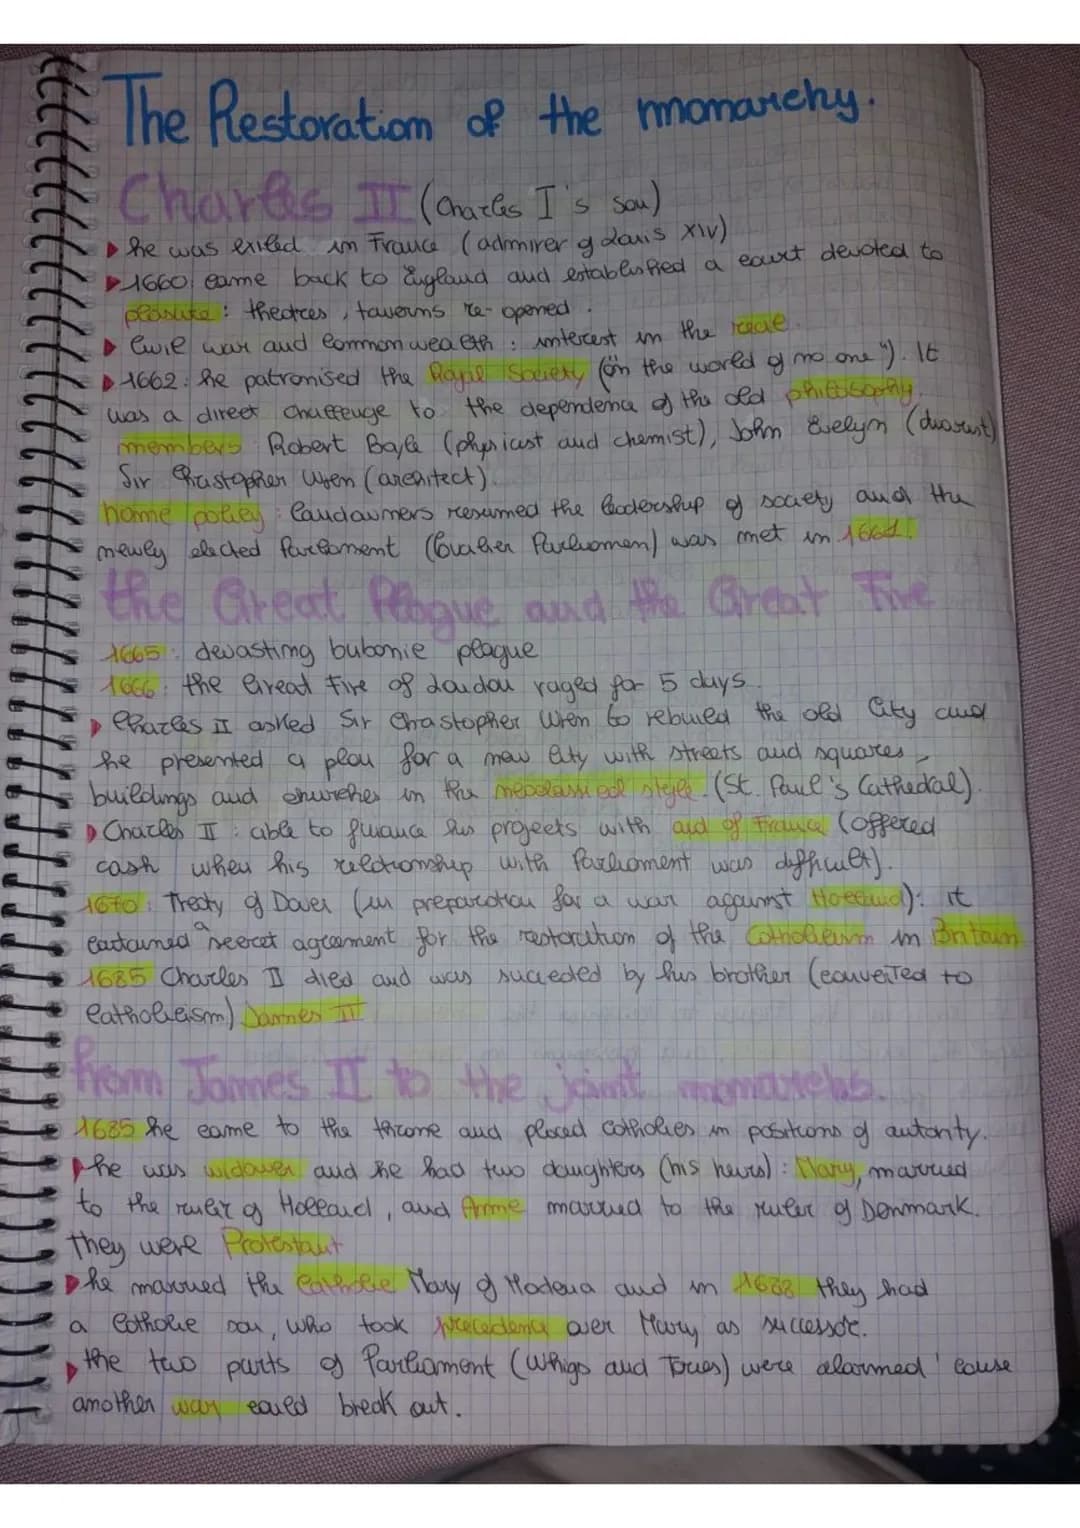 The Restoration of the monarchy.
Charles II (Charles I's son)
he was exiled in France (admirer of Louis XIV)
1660: came back to England and established a court devoted to
pleasure: theatres, taverns re-opened.
Civil war and Commonwealth: interest in the
1662: he patronised the Royal Society (in the world of no one"). It
was a direct challenge to the dependence of the old philosophy.
members Robert Boyle (physicist and chemist), John Evelyn (diarist)
Sir Christopher Wren (architect).
home policy: landowners resumed the leadership of society and the
newly elected Parliament (Cavalier Parliament) was met in 1661.
the Great Plague and the Great Fire
1665: devasting bubonic plague
1666: the Great Fire of London raged for 5 days.
Charles II asked Sir Christopher Wren to rebuild the old City and
he presented a plan for a new City with streets and squares,
buildings and churches in the neoclassical style. (St. Paul's Cathedral).
Charles II: able to finance his projects with aid of France (offered
cash when his relationship with Parliament was difficult).
1670: Treaty of Dover (in preparation for a war against Holland): it
contained a secret agreement for the restoration of the Catholicism in Britain
1685 Charles II died and was succeded by his brother (converted to
Catholicism) James II
from James II to the joint monarchs.
1685 he came to the throne and placed catholics in positions of autority.
he was widower and he had two daughters (his heirs): Mary, married
to the ruler of Holland, and Anne married to the ruler of Denmark.
They were Protestant
he married the Catholic Mary of Modena and in 1688 they had
a Catholic son, who took precedence over Mary as successor.
the two parts of Parliament (Whigs and Tories) were alarmed 'cause
another war could break out.